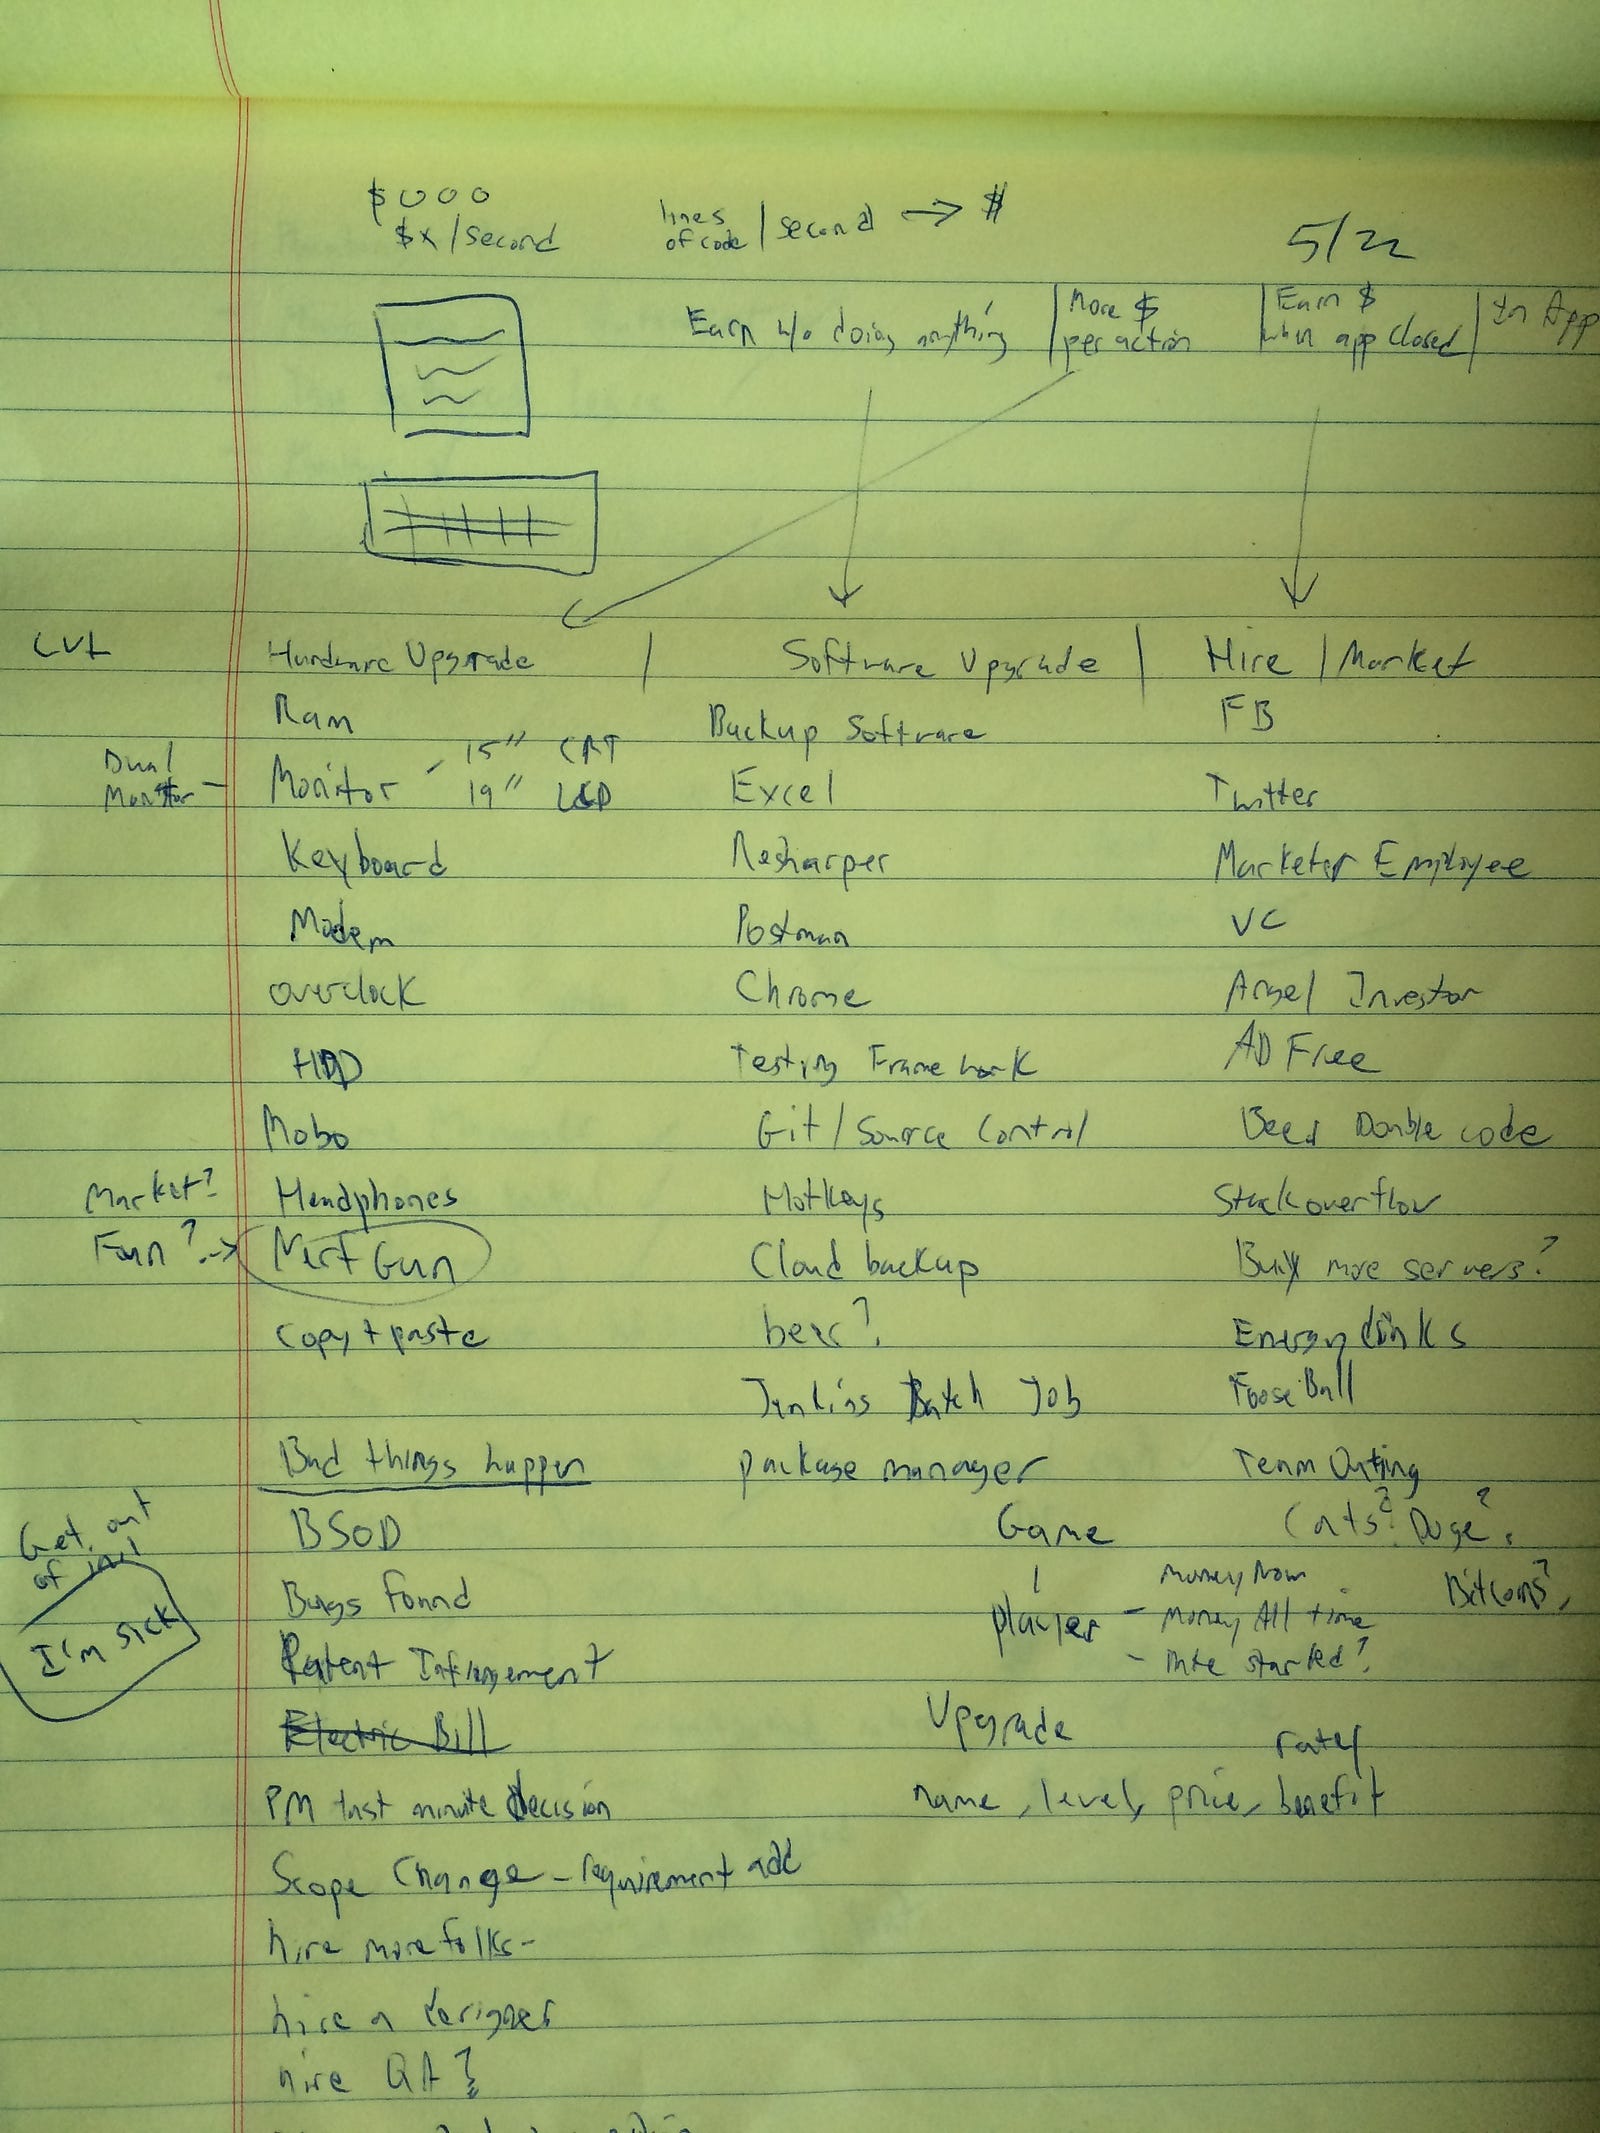 $000
$x/second
lines of code / second → $
5/22
Earn w/o doing anything | More $ per action | Earn $ when app closed | In App
LVL
Hardware Upgrade | Software Upgrade | Hire / Market
Ram
Backup Software
FB
Dual Monitor -
Monitor - 15" CRT
19" LCD
Excel
Twitter
Keyboard
Resharper
Marketer Employee
Modem
Postman
VC
overclock
Chrome
Angel Investor
HDD
Testing Framework
AD Free
Mobo
Git / Source Control
Beer Double code
Market?
Headphones
Hotkeys
Stackoverflow
Fun? ->
Nerf Gun
Cloud backup
Buy more servers?
copy + paste
beer?
Energy drinks
Jenkins Batch Job
Foose Ball
Bad things happen
package manager
Team Outing
Get out of jail
I'm sick
BSOD
Game
Cats? Doge?
Bitcoins?
Bugs found
Player - Money Now
- Money All time
- time started?
Patent Infringement
Electric Bill
Upgrade
PM last minute decision
name, level, price, benefit
rate/
Scope Change - requirement add
hire more folks -
hire a designer
hire QA?